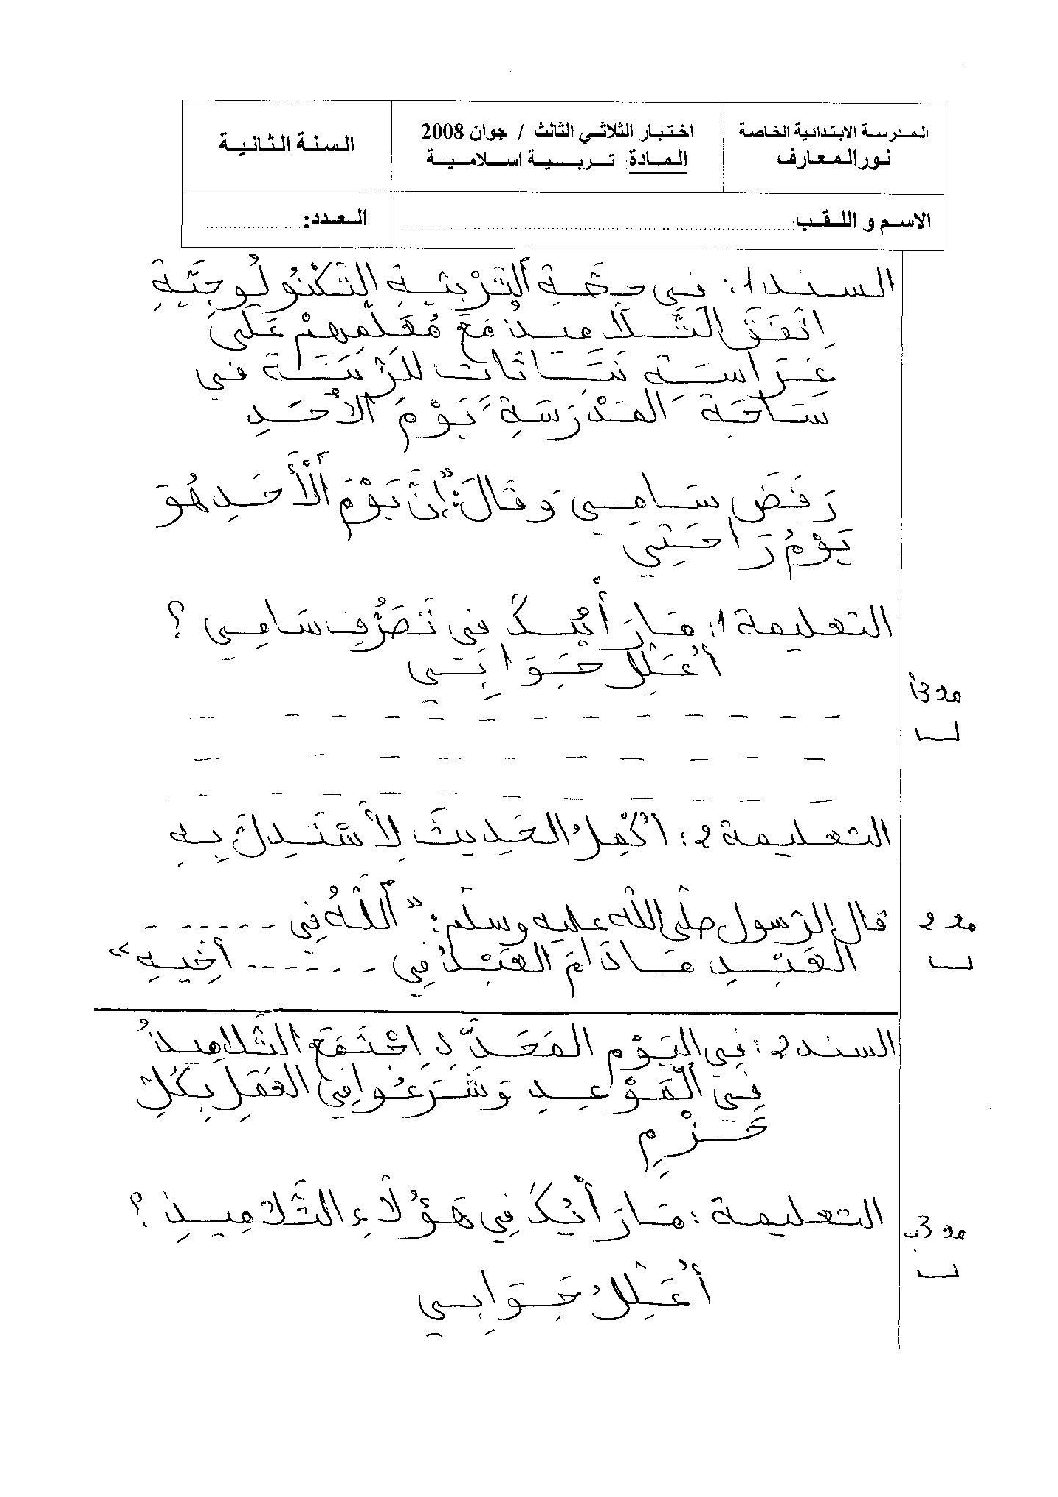 المدرسة الابتدائية الخاصة
نور المعارف
اختبار الثلاثي الثالث / جوان 2008
المادة: تربية اسلامية
السنة الثانية
الاسم و اللقب:
العدد:
السند 1: في حصّة التَّرْبِيَةِ التِّكْنُولُوجِيَّةِ
اِتَّفَقَ التَّلَامِيذُ مَعَ مُعَلِّمِهِمْ عَلَى
غِرَاسَةِ نَبَاتَاتٍ لِلزِّينَةِ فِي
سَاحَةِ المَدْرَسَةِ يَوْمَ الأَحَدِ
رَفَضَ سَامِي وَقَالَ: "إِنَّ يَوْمَ الْأَحَدِ هُوَ
يَوْمُ رَاحَتِي
التعليمة 1: مَا رَأْيُكَ فِي تَصَرُّفِ سَامِي ؟
أُعَلِّلُ جَوَابِي
مع 3أ
التعليمة 2: أُكْمِلُ الحَدِيثَ لِأَسْتَدِلَّ بِهِ
قال الرّسول صلّى الله عليه وسلّم: "اَللَّهُ فِي - - - - - - -
العَبْدِ مَا دَامَ العَبْدُ فِي - - - - - - أَخِيهِ"
مع 2
السند 2: فِي اليَوْمِ المُحَدَّدِ اِجْتَمَعَ التَّلَامِيذُ
فِي الْمَوْعِدِ وَشَرَعُوا فِي العَمَلِ بِكُلِّ
حَزْمٍ
التعليمة: مَا رَأْيُكَ فِي هَؤُلَاءِ التَّلَامِيذِ ؟
مع 3ب
أُعَلِّلُ جَوَابِي